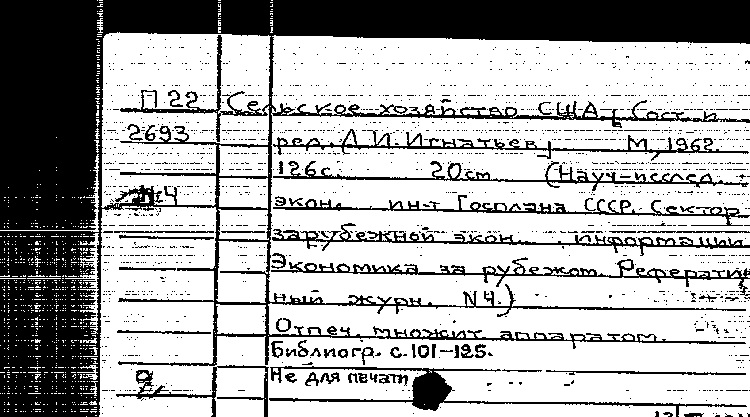 П 22 Сельское хозяйство США [Сост. и
2693 ред. А. И. Игнатьев] М., 1962.
126 с. 20 см (Науч-исслед.
№4 экон. ин-т Госплана СССР. Сектор
зарубежной экон. информации
Экономика за рубежом. Рефератив
ный журн. N 4.)
Отпеч. множит. аппаратом.
Библиогр. с. 101-125.
Не для печати